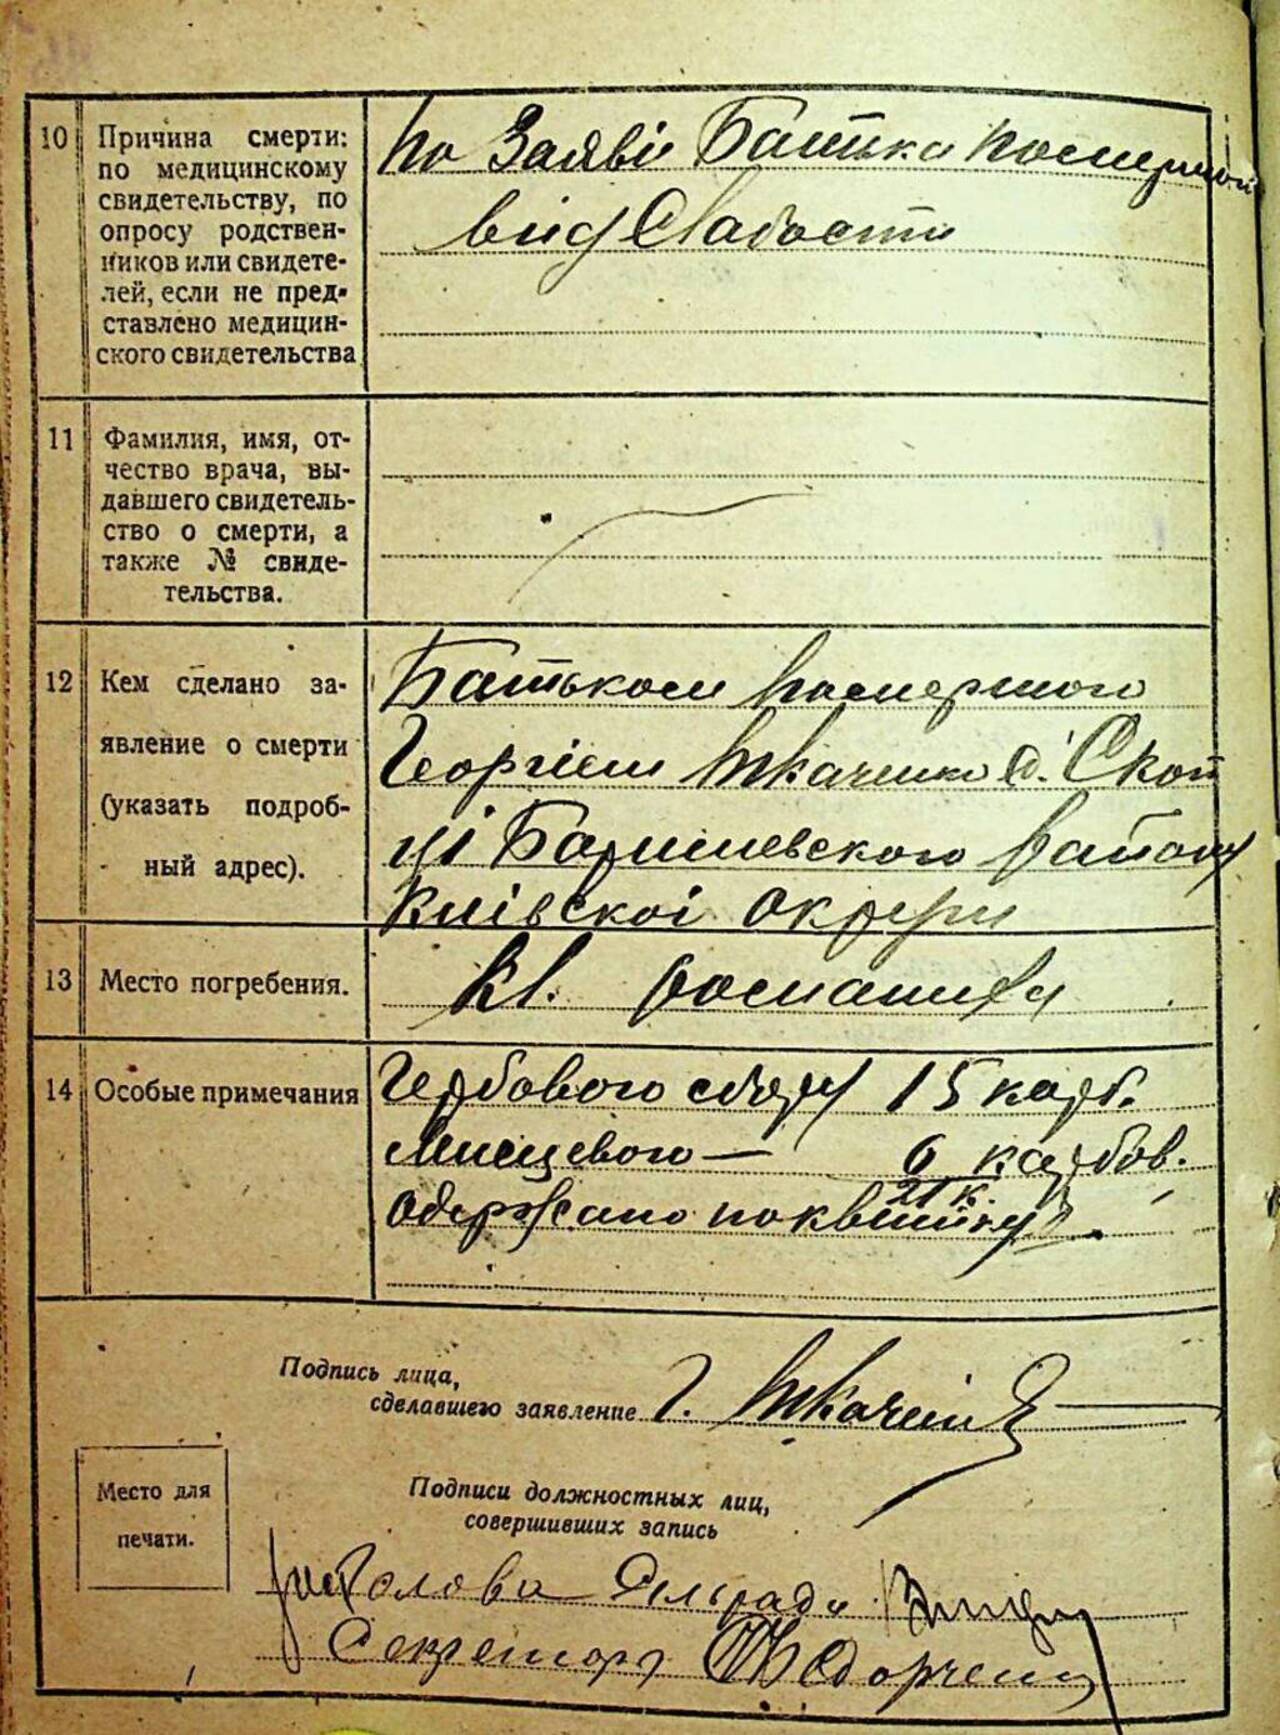 10 Причина смерти:
по медицинскому
свидетельству, по
опросу родствен-
ников или свидете-
лей, если не пред-
ставлено медицин-
ского свидетельства
по Заяві Батька помершої
від Слабости
11 Фамилия, имя, от-
чество врача, вы-
давшего свидетель-
ство о смерти, а
также № свиде-
тельства.
12 Кем сделано за-
явление о смерти
(указать подроб-
ный адрес).
Батьком помершого
Георгієм Ткаченко с. Скоп
ці Баришевского району
Київскої округи
13 Место погребения.
кл.
14 Особые примечания
Гербового сбору 15 карб.
Мисцевого — 6 карбов.
21 к.
одержано по квитку
Подпись лица,
сделавшего заявление Г. Ткаченко
Место для
печати.
Подписи должностных лиц,
совершивших запись
Голова Сільради
Секретарь Федорченко